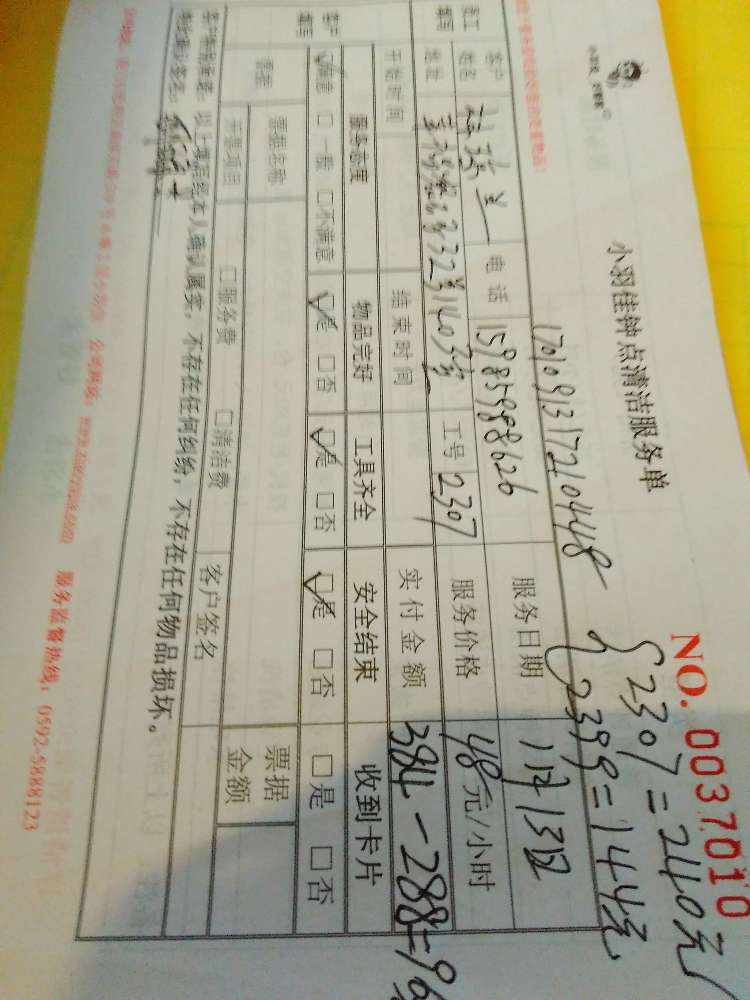 小羽佳 好管家
小羽佳钟点清洁服务单
NO. 0037010
2307=240元
2399=144元
1701091317210448
客户姓名 电话 15985988626 服务日期 1月13日
员工填写
地址 32号1403室 工号 2307 服务价格 48元/小时
开始时间 结束时间 实付金额 384-288=96
客户填写
服务态度 物品完好 工具齐全 安全结束 收到卡片
☑满意 □一般 □不满意 ☑是 □否 ☑是 □否 ☑是 □否 □是 □否
票据 票据名称 票据金额
开票项目 □服务费 □清洁费 客户签名
以上填写经本人确认属实,不存在任何纠纷,不存在任何物品损坏。
服务监督热线:0592-5888123